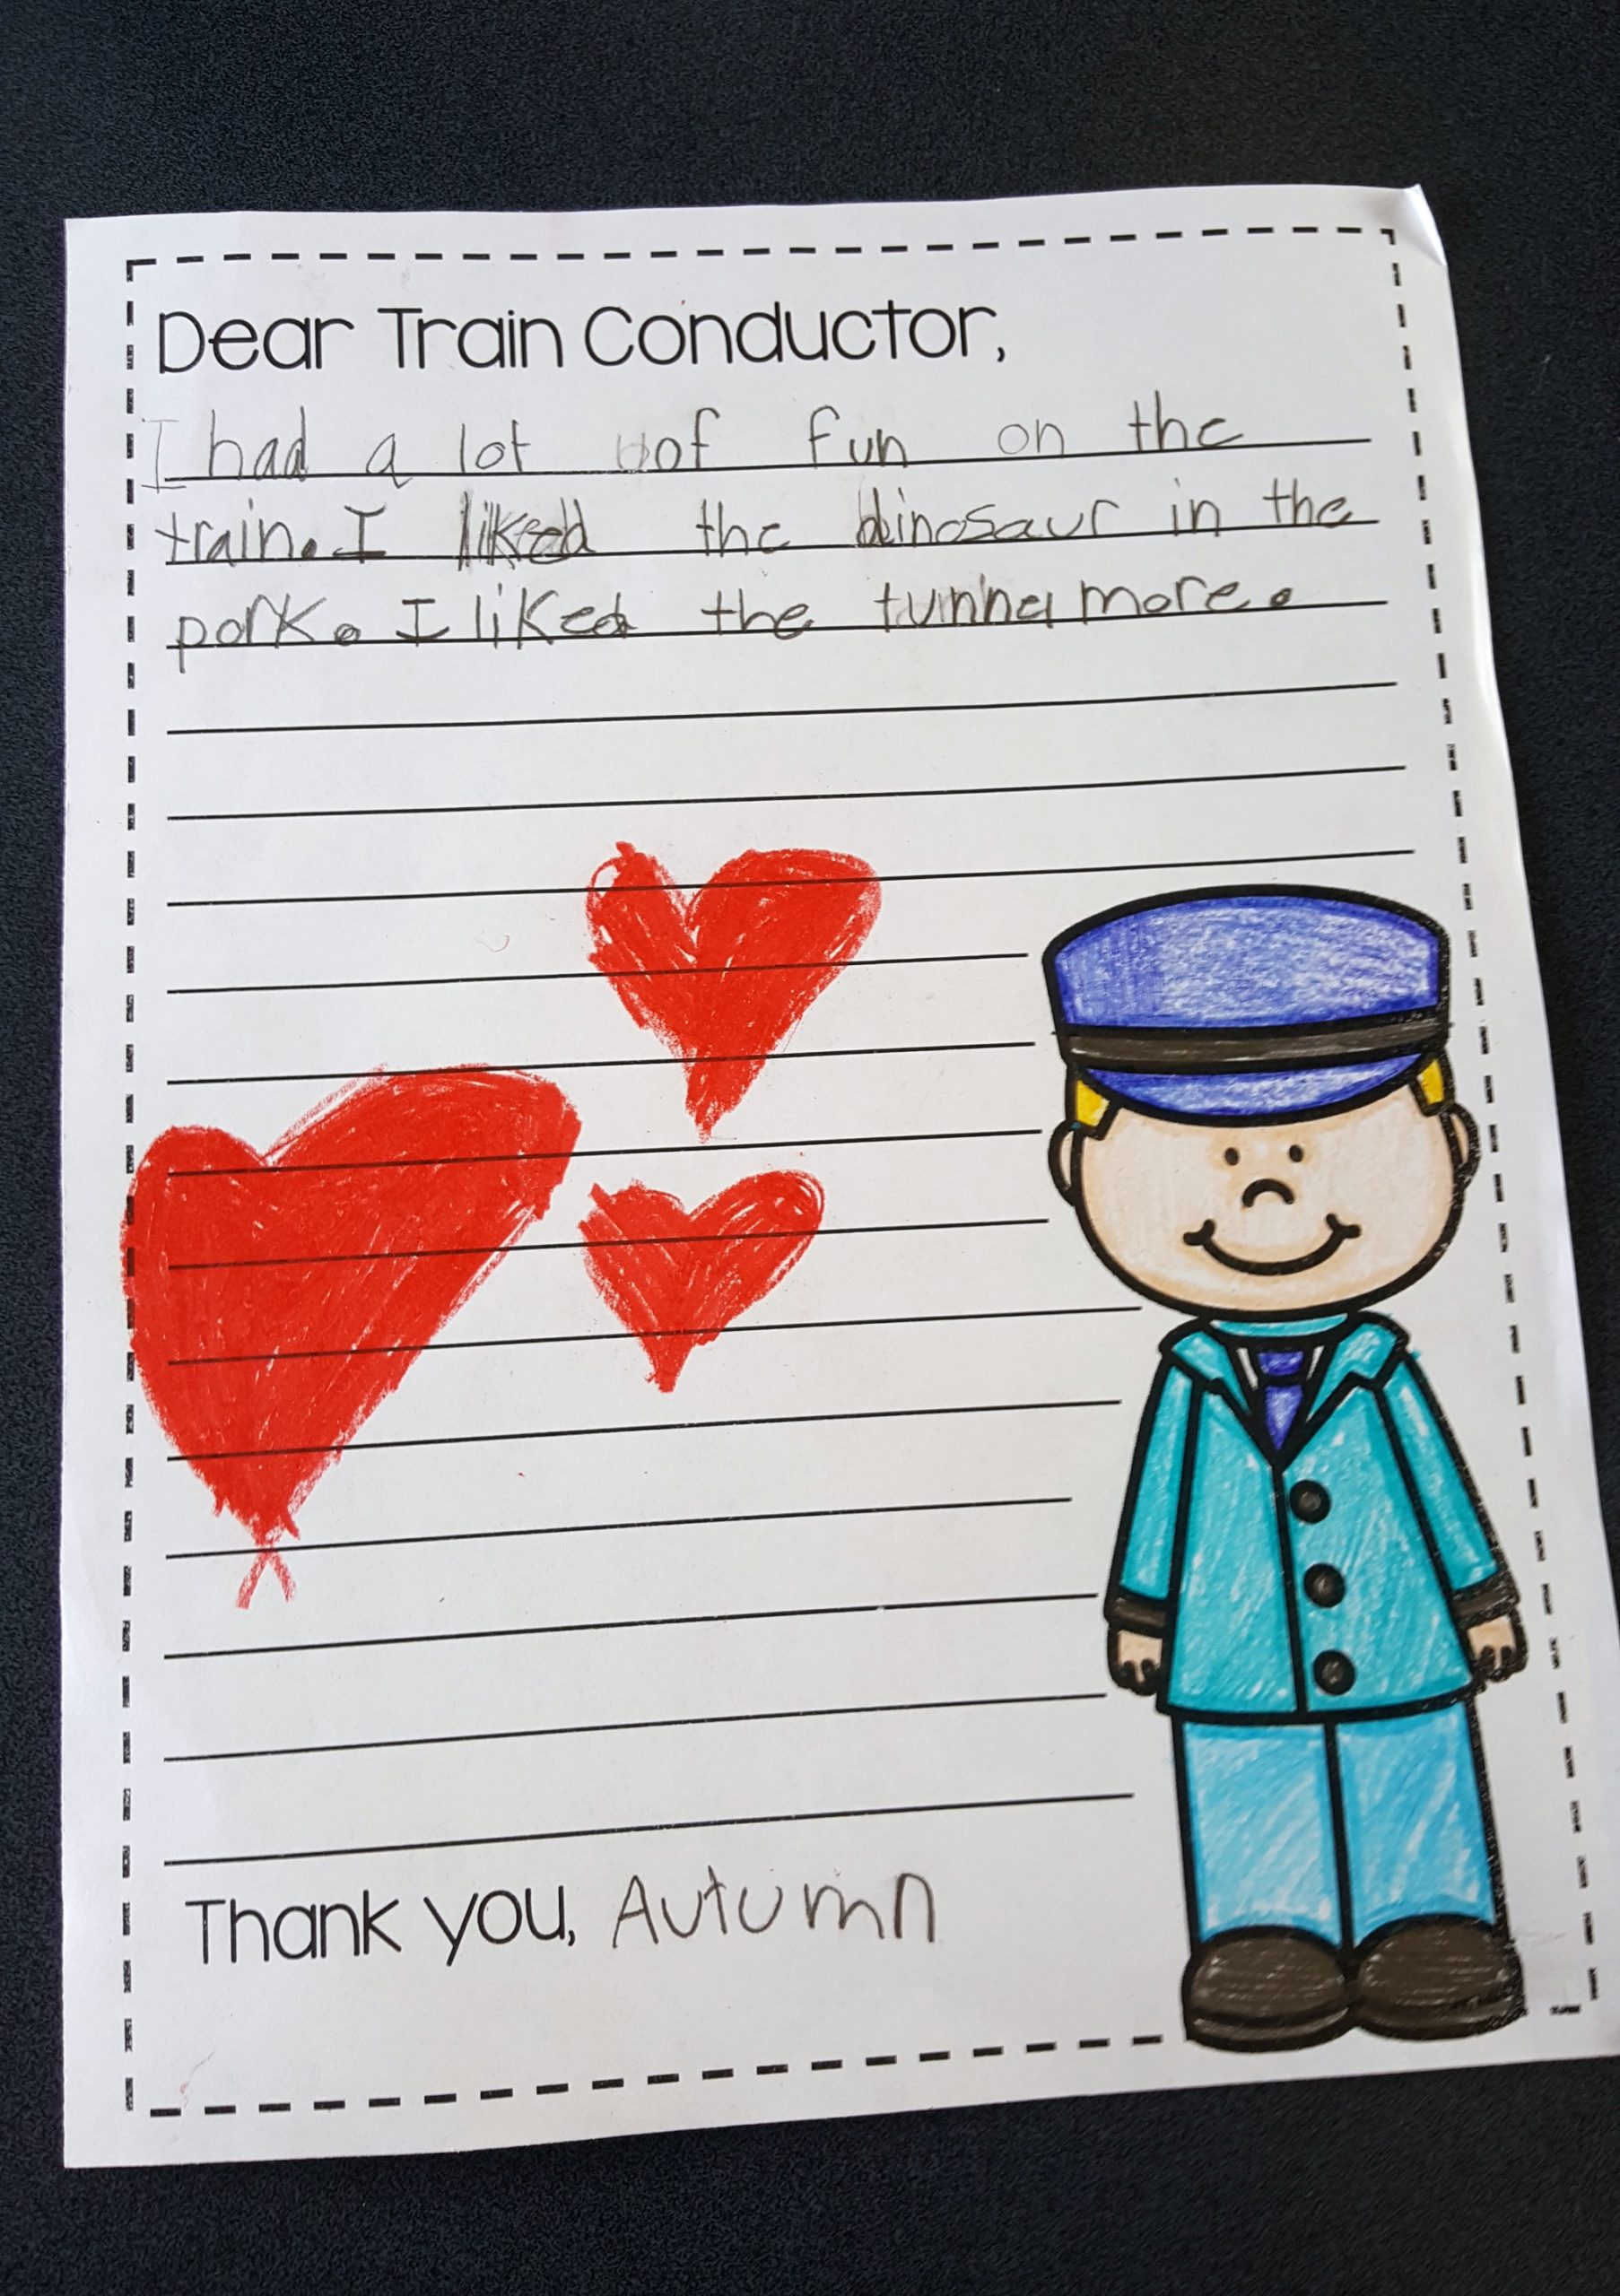 Dear Train Conductor,
I had a lot of fun on the
train. I liked the dinosaur in the
park. I liked the tunnel more.
Thank you, Autumn